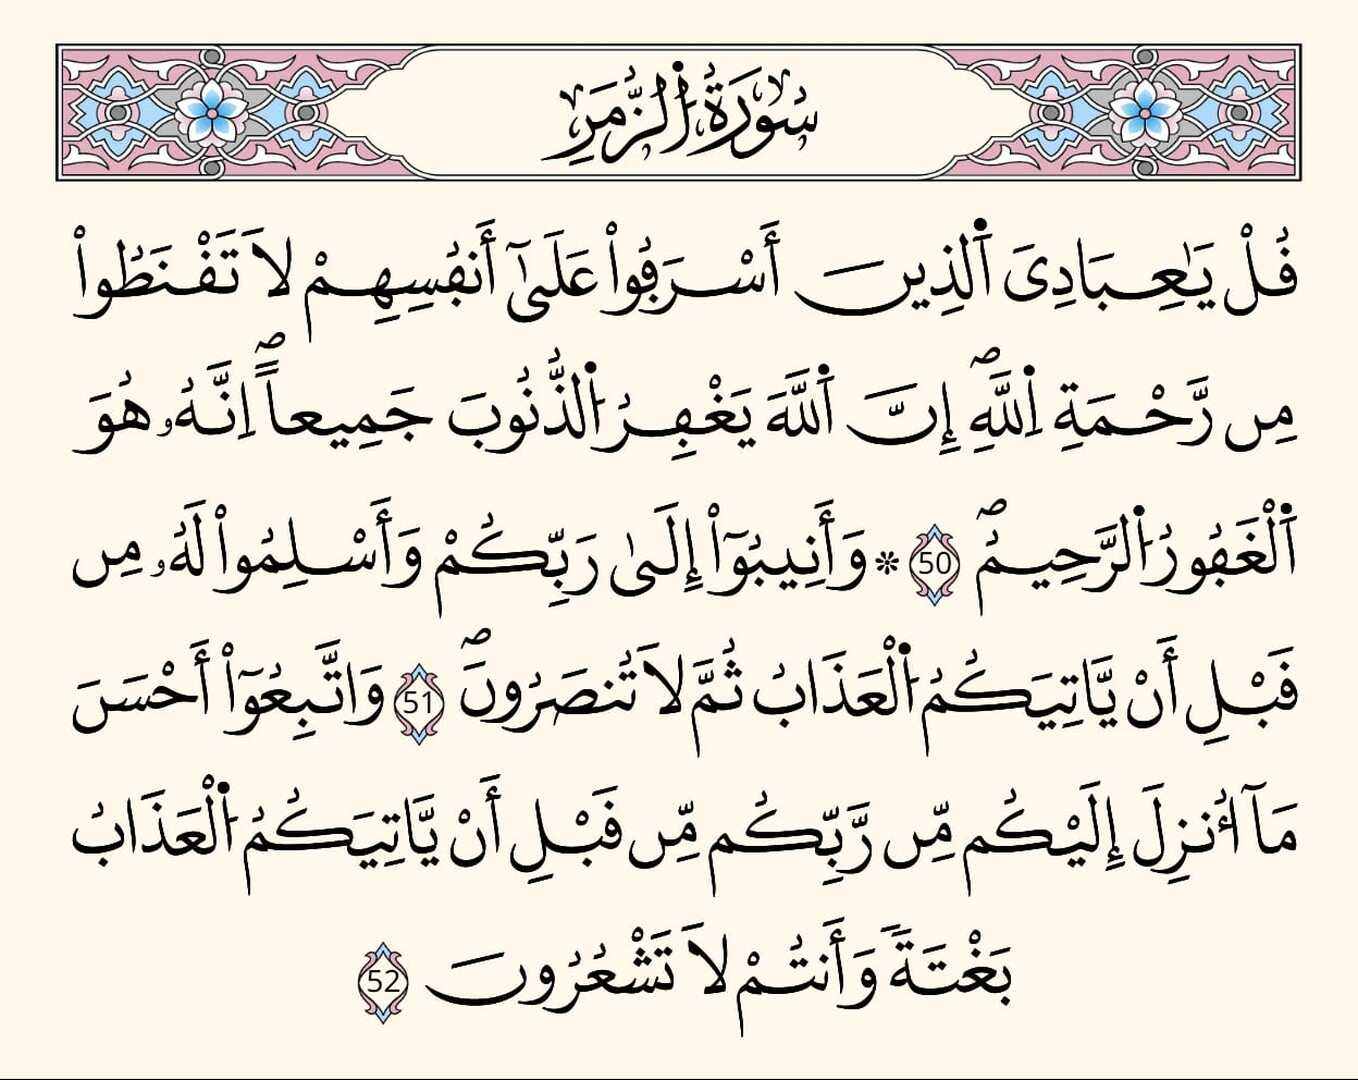 سُورَةُ الزُّمَرِ
قُلْ يَٰعِبَادِىَ اَ۬لذِينَ أَسْرَفُواْ عَلَىٰٓ أَنفُسِهِمْ لَا تَقْنَطُواْ
مِن رَّحْمَةِ اِ۬للَّهِۖ إِنَّ اَ۬للَّهَ يَغْفِرُ اُ۬لذُّنُوبَ جَمِيعاًۖ اِنَّهُۥ هُوَ
اَ۬لْغَفُورُ اُ۬لرَّحِيمُۖ 50 ۞ وَأَنِيبُوٓاْ إِلَىٰ رَبِّكُمْ وَأَسْلِمُواْ لَهُۥ مِن
قَبْلِ أَنْ يَّاتِيَكُمُ اُ۬لْعَذَابُ ثُمَّ لَا تُنصَرُونَۖ 51 وَاتَّبِعُوٓاْ أَحْسَنَ
مَآ أُنزِلَ إِلَيْكُم مِّن رَّبِّكُم مِّن قَبْلِ أَنْ يَّاتِيَكُمُ اُ۬لْعَذَابُ
بَغْتَةً وَأَنتُمْ لَا تَشْعُرُونَ 52